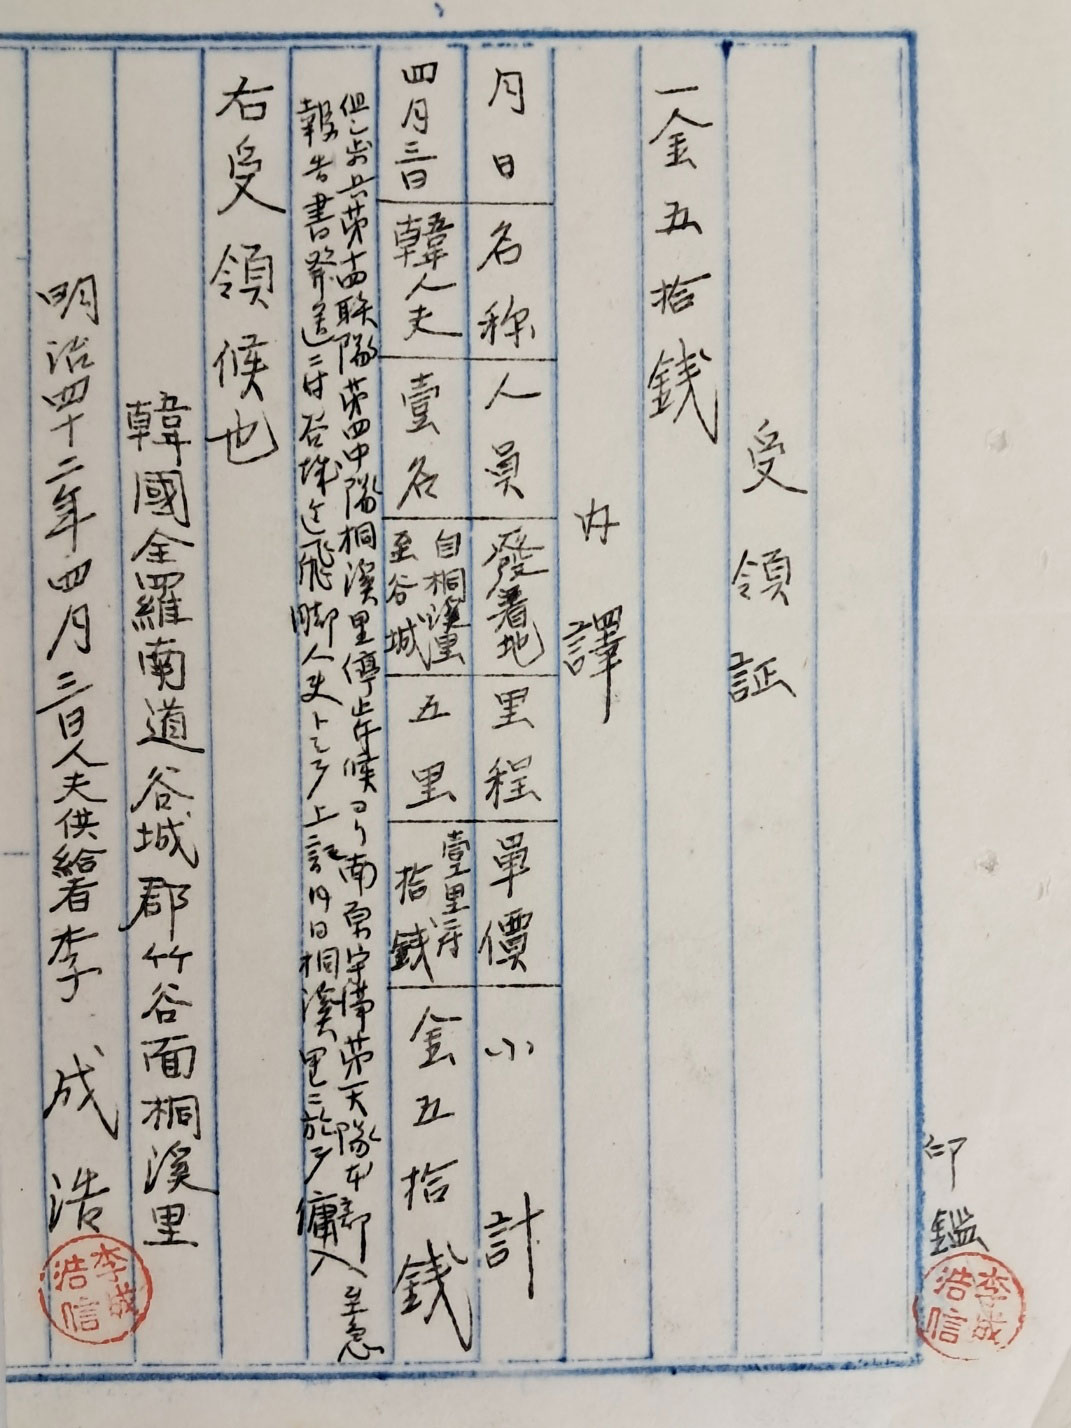 受領証
一金五拾銭
内譯
月日 名称 人員 發着地 里程 單價 小計
四月三日 韓人夫 壹名 自桐溪里 至谷城 五里 壹里ニ付 拾銭 金五拾銭
但シ歩兵第十四聯隊第四中隊桐溪里停止斥候ヨリ南原守備第大隊本部至急
報告書発送ニ付谷城迄飛脚人夫トシテ上記月日桐溪里ニ於テ傭入
右受領候也
韓國全羅南道谷城郡竹谷面桐溪里
明治四十二年四月三日人夫供給者李成浩
李成浩信
印鑑
李成浩信